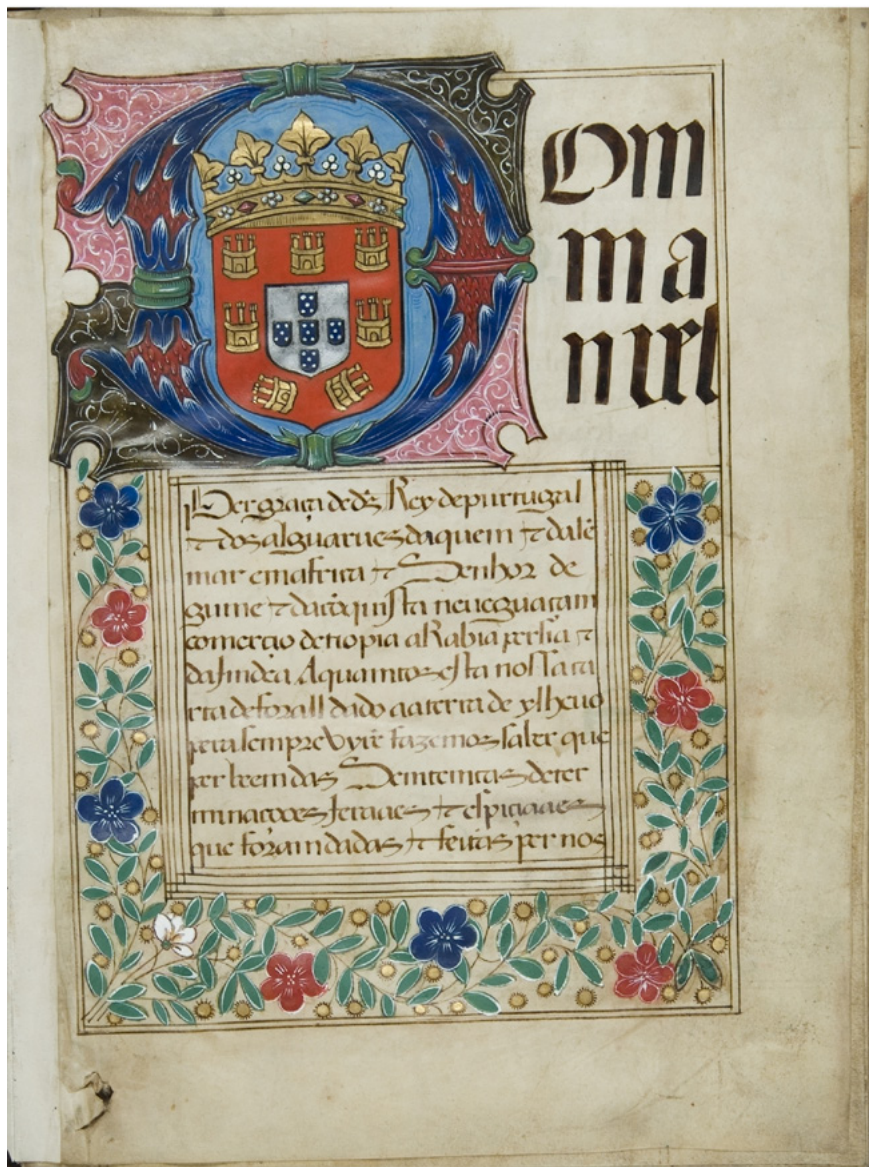 Dom
ma
nuel
Per graça de ds Rey de purtugal
⁊ dos alguarues daquem ⁊ dalē
mar em africa ⁊ Senhor de
guine ⁊ da cōquista naueguaçam
comerçio detiopia aRabia persia ⁊
da Jndea Aquamtos esta nossa ca
rta de forall dado aa terra de ylheuo
pera sempre vyrē fazemos saber que
per beem das Semtemças deter
minaçooes Jeraaes ⁊ espiçiaaes
que foram dadas ⁊ feitas per nos